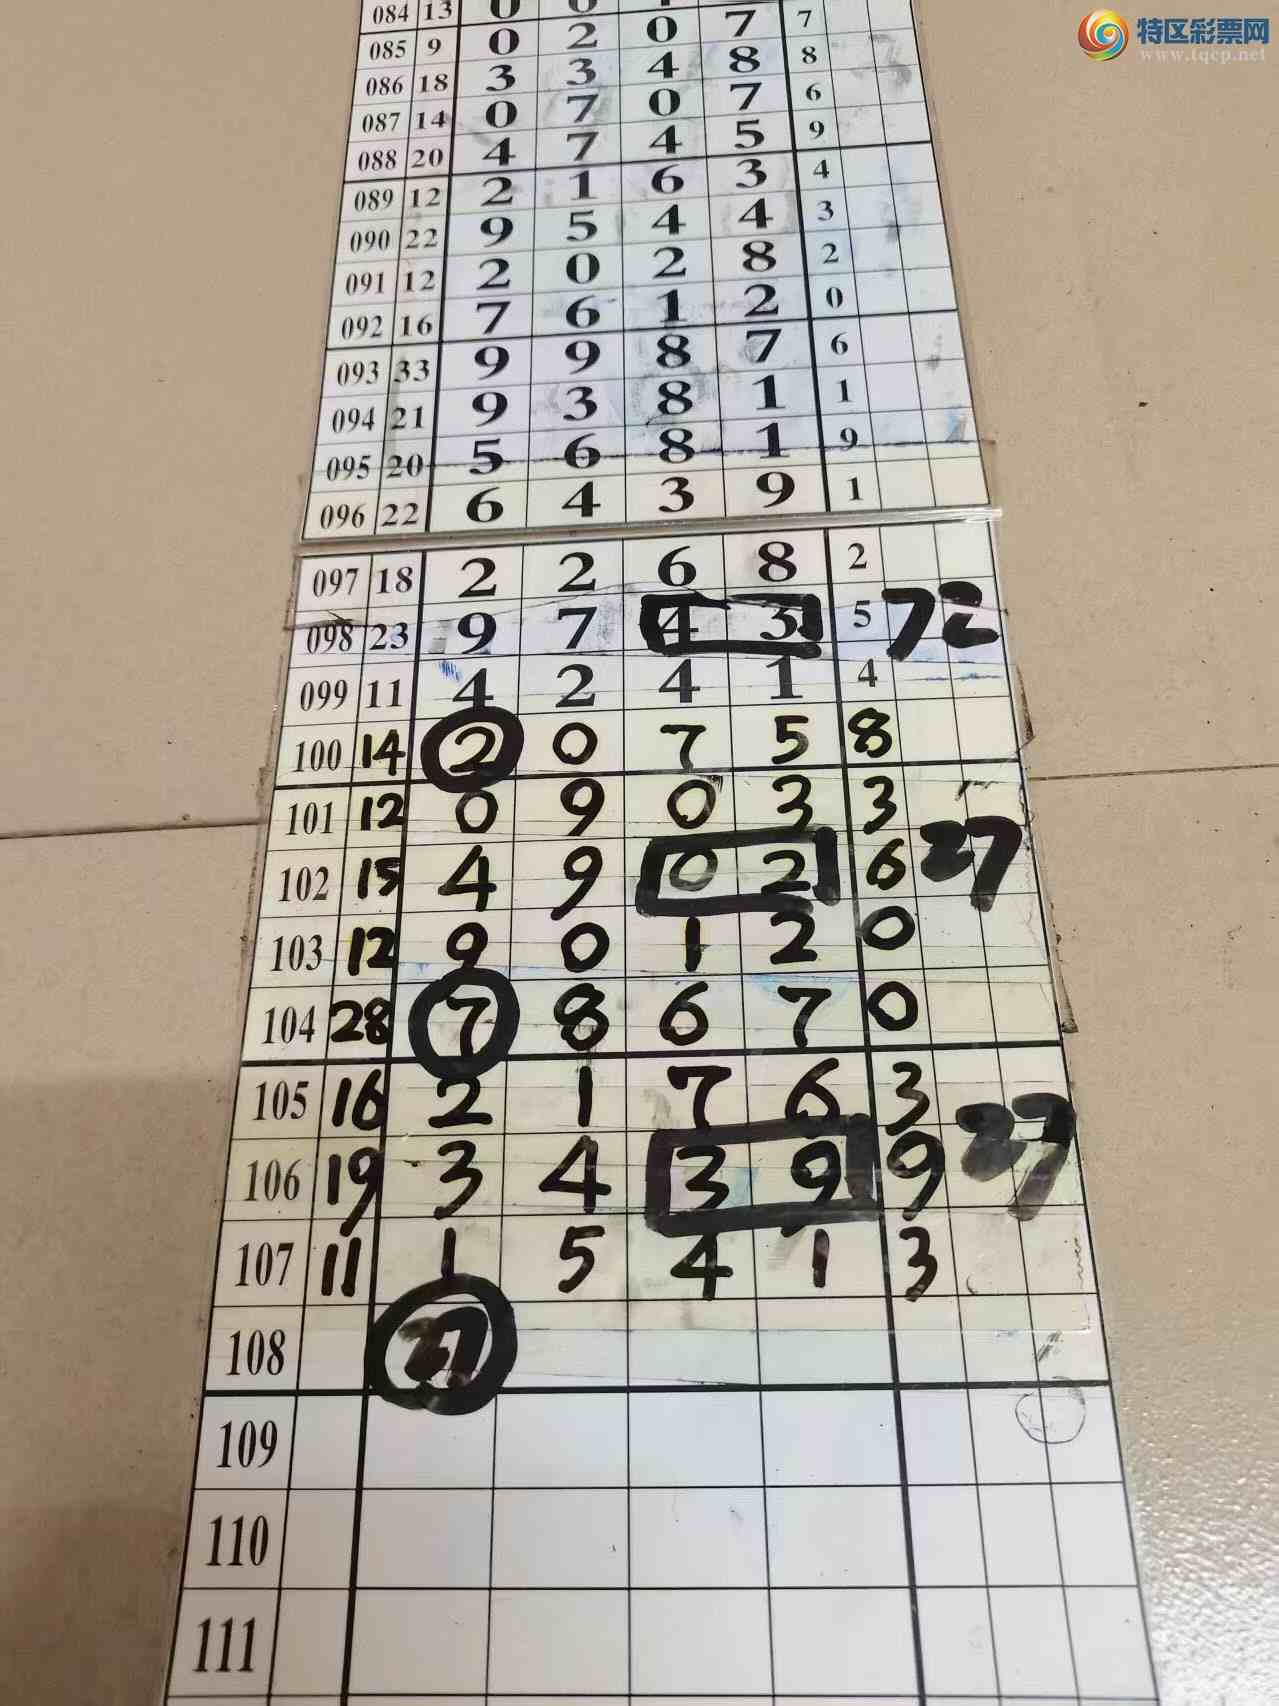 特区彩票网
www.tqcp.net
084 13 0
085 9 0 2 0 7 7
086 18 3 3 4 8 8
087 14 0 7 0 7 6
088 20 4 7 4 5 9
089 12 2 1 6 3 4
090 22 9 5 4 4 3
091 12 2 0 2 8 2
092 16 7 6 1 2 0
093 33 9 9 8 7 6
094 21 9 3 8 1 1
095 20 5 6 8 1 9
096 22 6 4 3 9 1
097 18 2 2 6 8 2
098 23 9 7 4 3 5 72
099 11 4 2 4 1 4
100 14 2 0 7 5 8
101 12 0 9 0 3 3
102 15 4 9 0 2 6 27
103 12 9 0 1 2 0
104 28 7 8 6 7 0
105 16 2 1 7 6 3
106 19 3 4 3 9 9 27
107 11 1 5 4 1 3
108 27
109
110
111